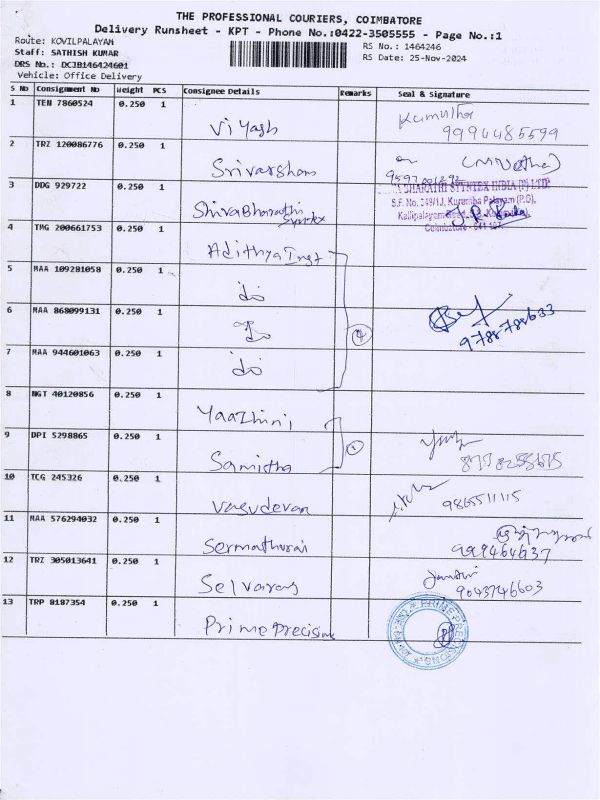 THE PROFESSIONAL COURIERS, COIMBATORE
Delivery Runsheet - KPT - Phone No.:0422-3505555 - Page No.:1
Route: KOVILPALAYAM
RS No.: 1464246
Staff: SATHISH KUMAR
RS Date: 25-Nov-2024
DRS No.: DCJB146424601
Vehicle: Office Delivery
S No Consignment No Weight PCS Consignee Details Remarks Seal & Signature
1 TEN 7860524 0.250 1 Viyash Kamutha
9994485599
2 TRZ 120086776 0.250 1 Srivarshan
3 DDG 929722 0.250 1 ShivaBharathi
Syntex
BHARATHI SYNTEX INDIA (P) LTD
S.F. No. 349/1J, Kurumba Palayam (P.O),
Coimbatore - 641 107
4 TMG 200661753 0.250 1 Adithya Inst
5 MAA 109281058 0.250 1 do
6 MAA 868099131 0.250 1 do 4
9788788633
7 MAA 944601063 0.250 1 do
8 NGT 40120856 0.250 1 Yaazhini
9 DPI 5298865 0.250 1 Samitha
10 TCG 245326 0.250 1 Vasudevan
9865511115
11 MAA 576294032 0.250 1 Sermathurai
12 TRZ 305013641 0.250 1 Selvaraj
9043746603
13 TRP 8187354 0.250 1 Prime Precision
PRIME PRECISIONS